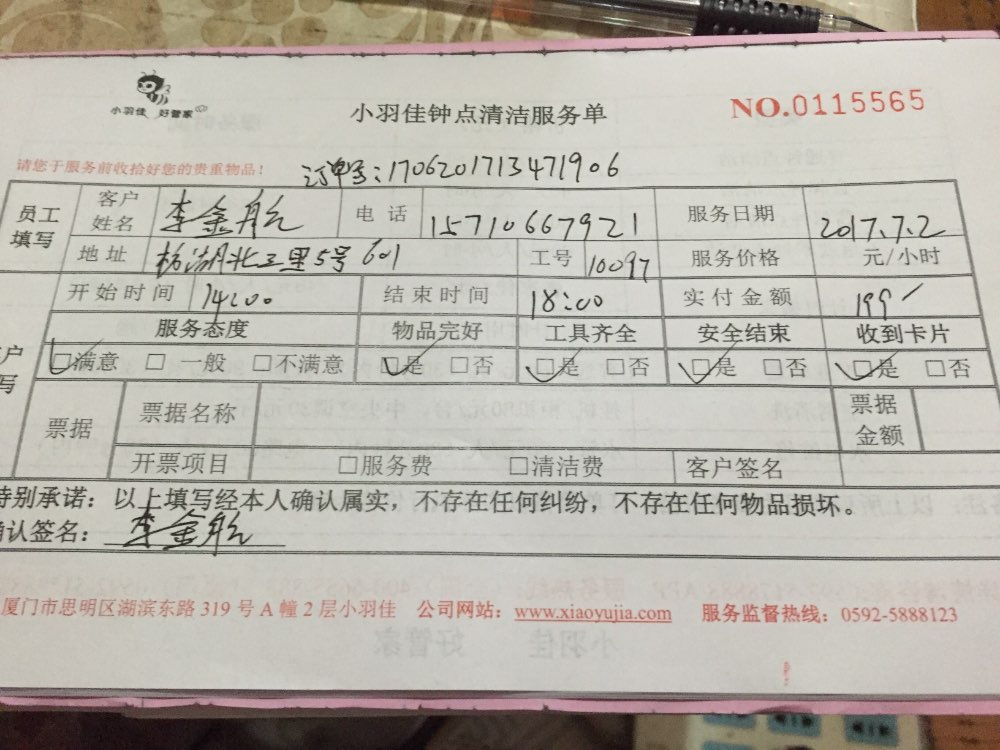 小羽佳 好管家
小羽佳钟点清洁服务单
NO.0115565
请您于服务前收拾好您的贵重物品！
订单号:1706201713471906
员工填写 客户姓名 李金航 电话 15710667921 服务日期 2017.7.2
地址 湖北三里5号601 工号 10097 服务价格 元/小时
开始时间 14:00 结束时间 18:00 实付金额 199
服务态度 物品完好 工具齐全 安全结束 收到卡片
户写 □满意 □一般 □不满意 □是 □否 □是 □否 □是 □否 □是 □否
票据 票据名称 票据金额
开票项目 □服务费 □清洁费 客户签名
特别承诺：以上填写经本人确认属实，不存在任何纠纷，不存在任何物品损坏。
确认签名：李金航
厦门市思明区湖滨东路319号A幢2层小羽佳 公司网站：www.xiaoyujia.com 服务监督热线：0592-5888123